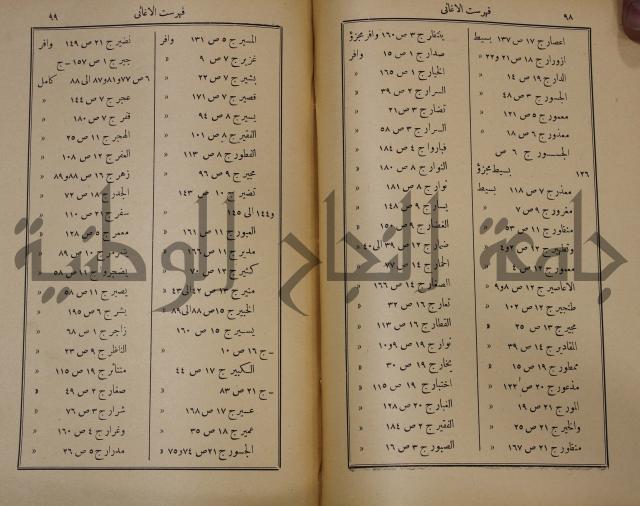 ٩٨
فهرست الاغانى
اعصار ج ١٧ ص ١٣٧ بسيط
ازورار ج ١٨ ص ٢١ و ٢٢ »
الدار ج ١٩ ص ١٤ »
الجسور ج ٣ ص ٤٨ »
ممعور ج ٥ ص ١٢١ »
معذور ج ٦ ص ١٨ »
الجسور ج ٦ ص
١٢٦ بسيط مجزؤ
معذر ج ٧ ص ١١٨ بسيط
مغرور ج ٩ ص ٧ »
منقاور ج ١١ ص ٥٣ »
وتطهير ج ١٢ ص ٢ و ٤ »
ممعور ج ١٢ ص ٤ »
الاعاصير ج ١٢ ص ٨ و ٩ »
طنجير ج ١٢ ص ١٠٢ »
مجير ج ١٣ ص ٢٥ »
المقادير ج ١٤ ص ٣٩ »
ممطور ج ١٩ ص ١٥ »
مذعور ج ٢٠ ص ١٢٢ »
المور ج ٢١ ص ١٩ »
والخير ج ٢١ ص ٢٥ »
منقاور ج ٢١ ص ١٦٧ »
يانفار ج ٣ ص ١٦٠ وافر مجزؤ
صدار ج ١ ص ١٥ وافر
الخيار ج ١ ص ١٦٥ »
السرار ج ٢ ص ٣٩ »
تضار ج ٣ ص ٢١ »
السرار ج ٣ ص ٥٨ »
فباروا ج ٤ ص ١٨٤ »
النوار ج ٨ ص ١٨٠ »
نوار ج ٨ ص ١٨١ »
يسار ج ٩ ص ١٤٨ »
القطار ج ٩ ص ١٥٠ »
ضمار ج ١٢ ص ٣٩ الى ٤٠ »
الخمار ج ١٤ ص ٨٧ »
الصغار ج ١٤ ص ١٦٦ »
تمار ج ١٦ ص ٣٢ »
القطار ج ١٦ ص ١١٣ »
نوار ج ١٩ ص ٩ و ١٠ »
بخار ج ١٩ ص ٣٠ »
اختبار ج ١٩ ص ١١٥ »
الغبار ج ٢٠ ص ١٢٨ »
الفقير ج ٢ ص ١٨٤ »
الصبور ج ٣ ص ١٦ »
فهرست الاغانى
٩٩
المسير ج ٥ ص ١٣١ وافر
غزير ج ٧ ص ٩ »
بشير ج ٧ ص ٢٢ »
قصير ج ٧ ص ١٧١ »
يسير ج ٨ ص ٩٤ »
الفقير ج ٨ ص ١٠١ »
الفطور ج ٨ ص ١١٣ »
مجير ج ٩ ص ٩٦ »
تضير ج ١٠ ص ١٤٣
و ١٤٤ الى ١٤٥ »
العبور ج ١١ ص ١٦١ »
مدير ج ١١ ص ١٦٦ »
كثير ج ١٢ ص ٧٠ »
منير ج ١٣ ص ٤٢ الى ٤٣ »
الخبير ج ١٥ ص ٨٨ الى ٨٩ »
يسير ج ١٥ ص ١٦٠
ـ ج ١٦ ص ١٠ »
الكبير ج ١٧ ص ٤٤
ـ ج ٢١ ص ٨٣ »
عسير ج ١٧ ص ١٦٨ »
عمير ج ١٨ ص ٣٥ »
الجسور ج ٢١ ص ٧٤ و ٧٥ »
نضير ج ٢١ ص ١٤٩ وافر
جير ج ١ ص ١٥٧ ـ ج
٦ ص ٧٧ و ٨١ و ٨٧ الى ٨٨ كامل
عجر ج ٧ ص ١٤٤ »
قفر ج ٧ ص ١٨٠ »
الهجر ج ١١ ص ٢٥ »
العفر ج ١٢ ص ١٠٨ »
زهر ج ١٦ ص ٨٨ و ٨٩ »
الجدر ج ١٨ ص ٧٢ »
سفر ج ٢١ ص ١١٠ »
معمر ج ٥ ص ١٢٨ »
ج ١٠ ص ٨٩ »
ج ١١ ص ٥٨ »
يصير ج ١١ ص ٥٨ »
بشر ج ٦ ص ١٩٥ »
زاجر ج ١ ص ٦٨ »
الناظر ج ٩ ص ٢٣ »
متناثر ج ١٩ ص ١١٥ »
صغار ج ٢ ص ٤٩ »
شرار ج ٣ ص ٧٦ »
وغرار ج ٤ ص ١٦٠ »
مدرار ج ٥ ص ٢٦ »
جامعة النجاح الوطنية